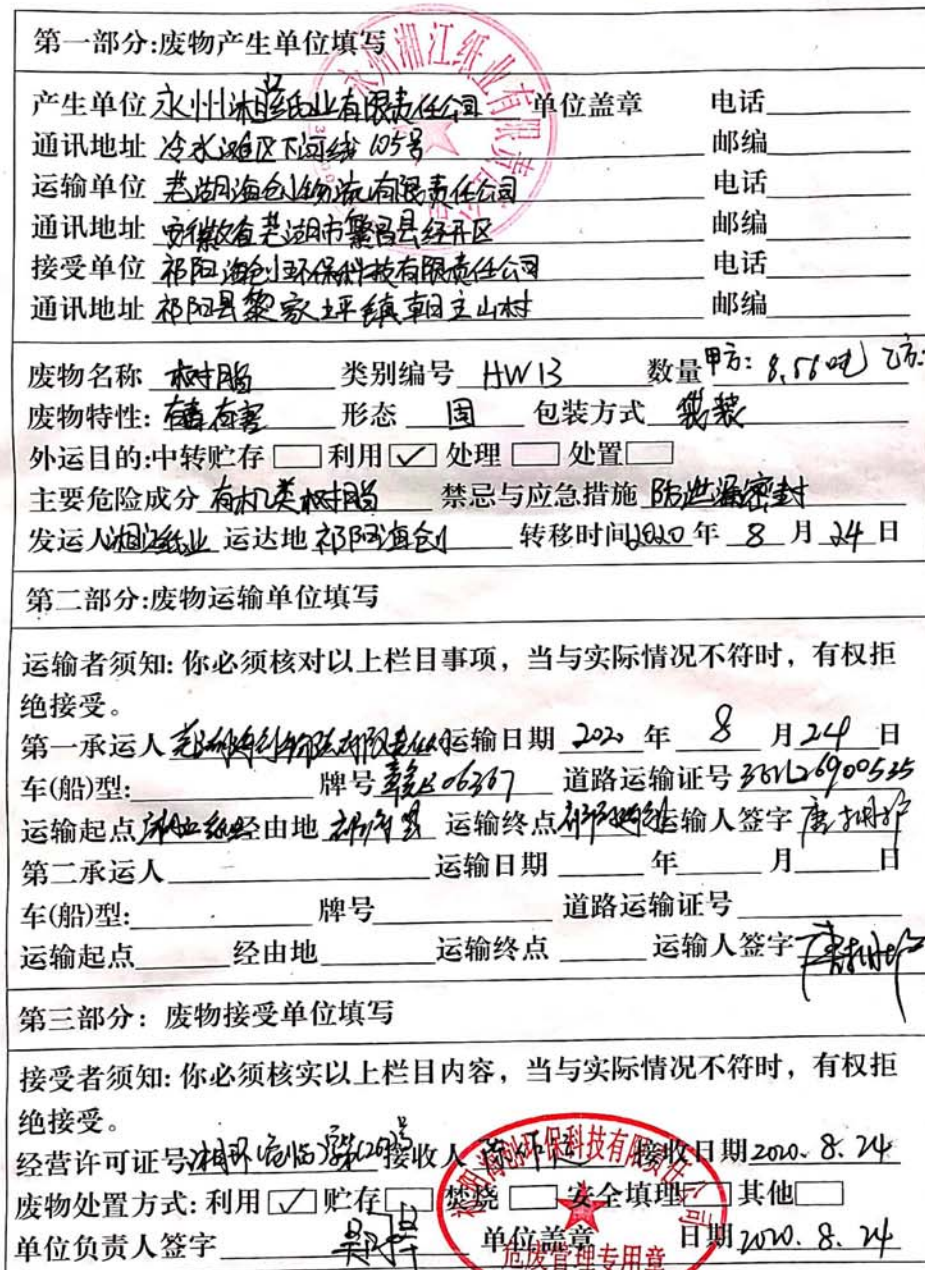 第一部分:废物产生单位填写
永州湘江纸业有限责任公司
产生单位 永州湘江纸业有限责任公司 单位盖章 电话
通讯地址 冷水滩区下河线105号 邮编
运输单位 芜湖海创物流有限责任公司 电话
通讯地址 安徽省芜湖市繁昌县经开区 邮编
接受单位 祁阳海创环保科技有限责任公司 电话
通讯地址 祁阳县黎家坪镇朝主山村 邮编
废物名称 树脂 类别编号 HW13 数量 甲方: 8.56吨 乙方:
废物特性: 有毒有害 形态 固 包装方式 袋装
外运目的:中转贮存 利用 ✓ 处理 处置
主要危险成分 有机类树脂 禁忌与应急措施 防泄漏密封
发运人 湘江纸业 运达地 祁阳海创 转移时间 2020 年 8 月 24 日
第二部分:废物运输单位填写
运输者须知: 你必须核对以上栏目事项，当与实际情况不符时，有权拒
绝接受。
第一承运人 芜湖海创物流有限责任公司 运输日期 2020 年 8 月 24 日
车(船)型: 牌号 道路运输证号
运输起点 湘江纸业 经由地 运输终点 祁阳海创 运输人签字
第二承运人 运输日期 年 月 日
车(船)型: 牌号 道路运输证号
运输起点 经由地 运输终点 运输人签字
第三部分：废物接受单位填写
接受者须知: 你必须核实以上栏目内容，当与实际情况不符时，有权拒
绝接受。
经营许可证号 接收人 接收日期 2020. 8. 24
废物处置方式: 利用 ✓ 贮存 焚烧 安全填埋 其他
单位负责人签字 单位盖章 日期 2020. 8. 24
祁阳海创环保科技有限责任公司
危废管理专用章